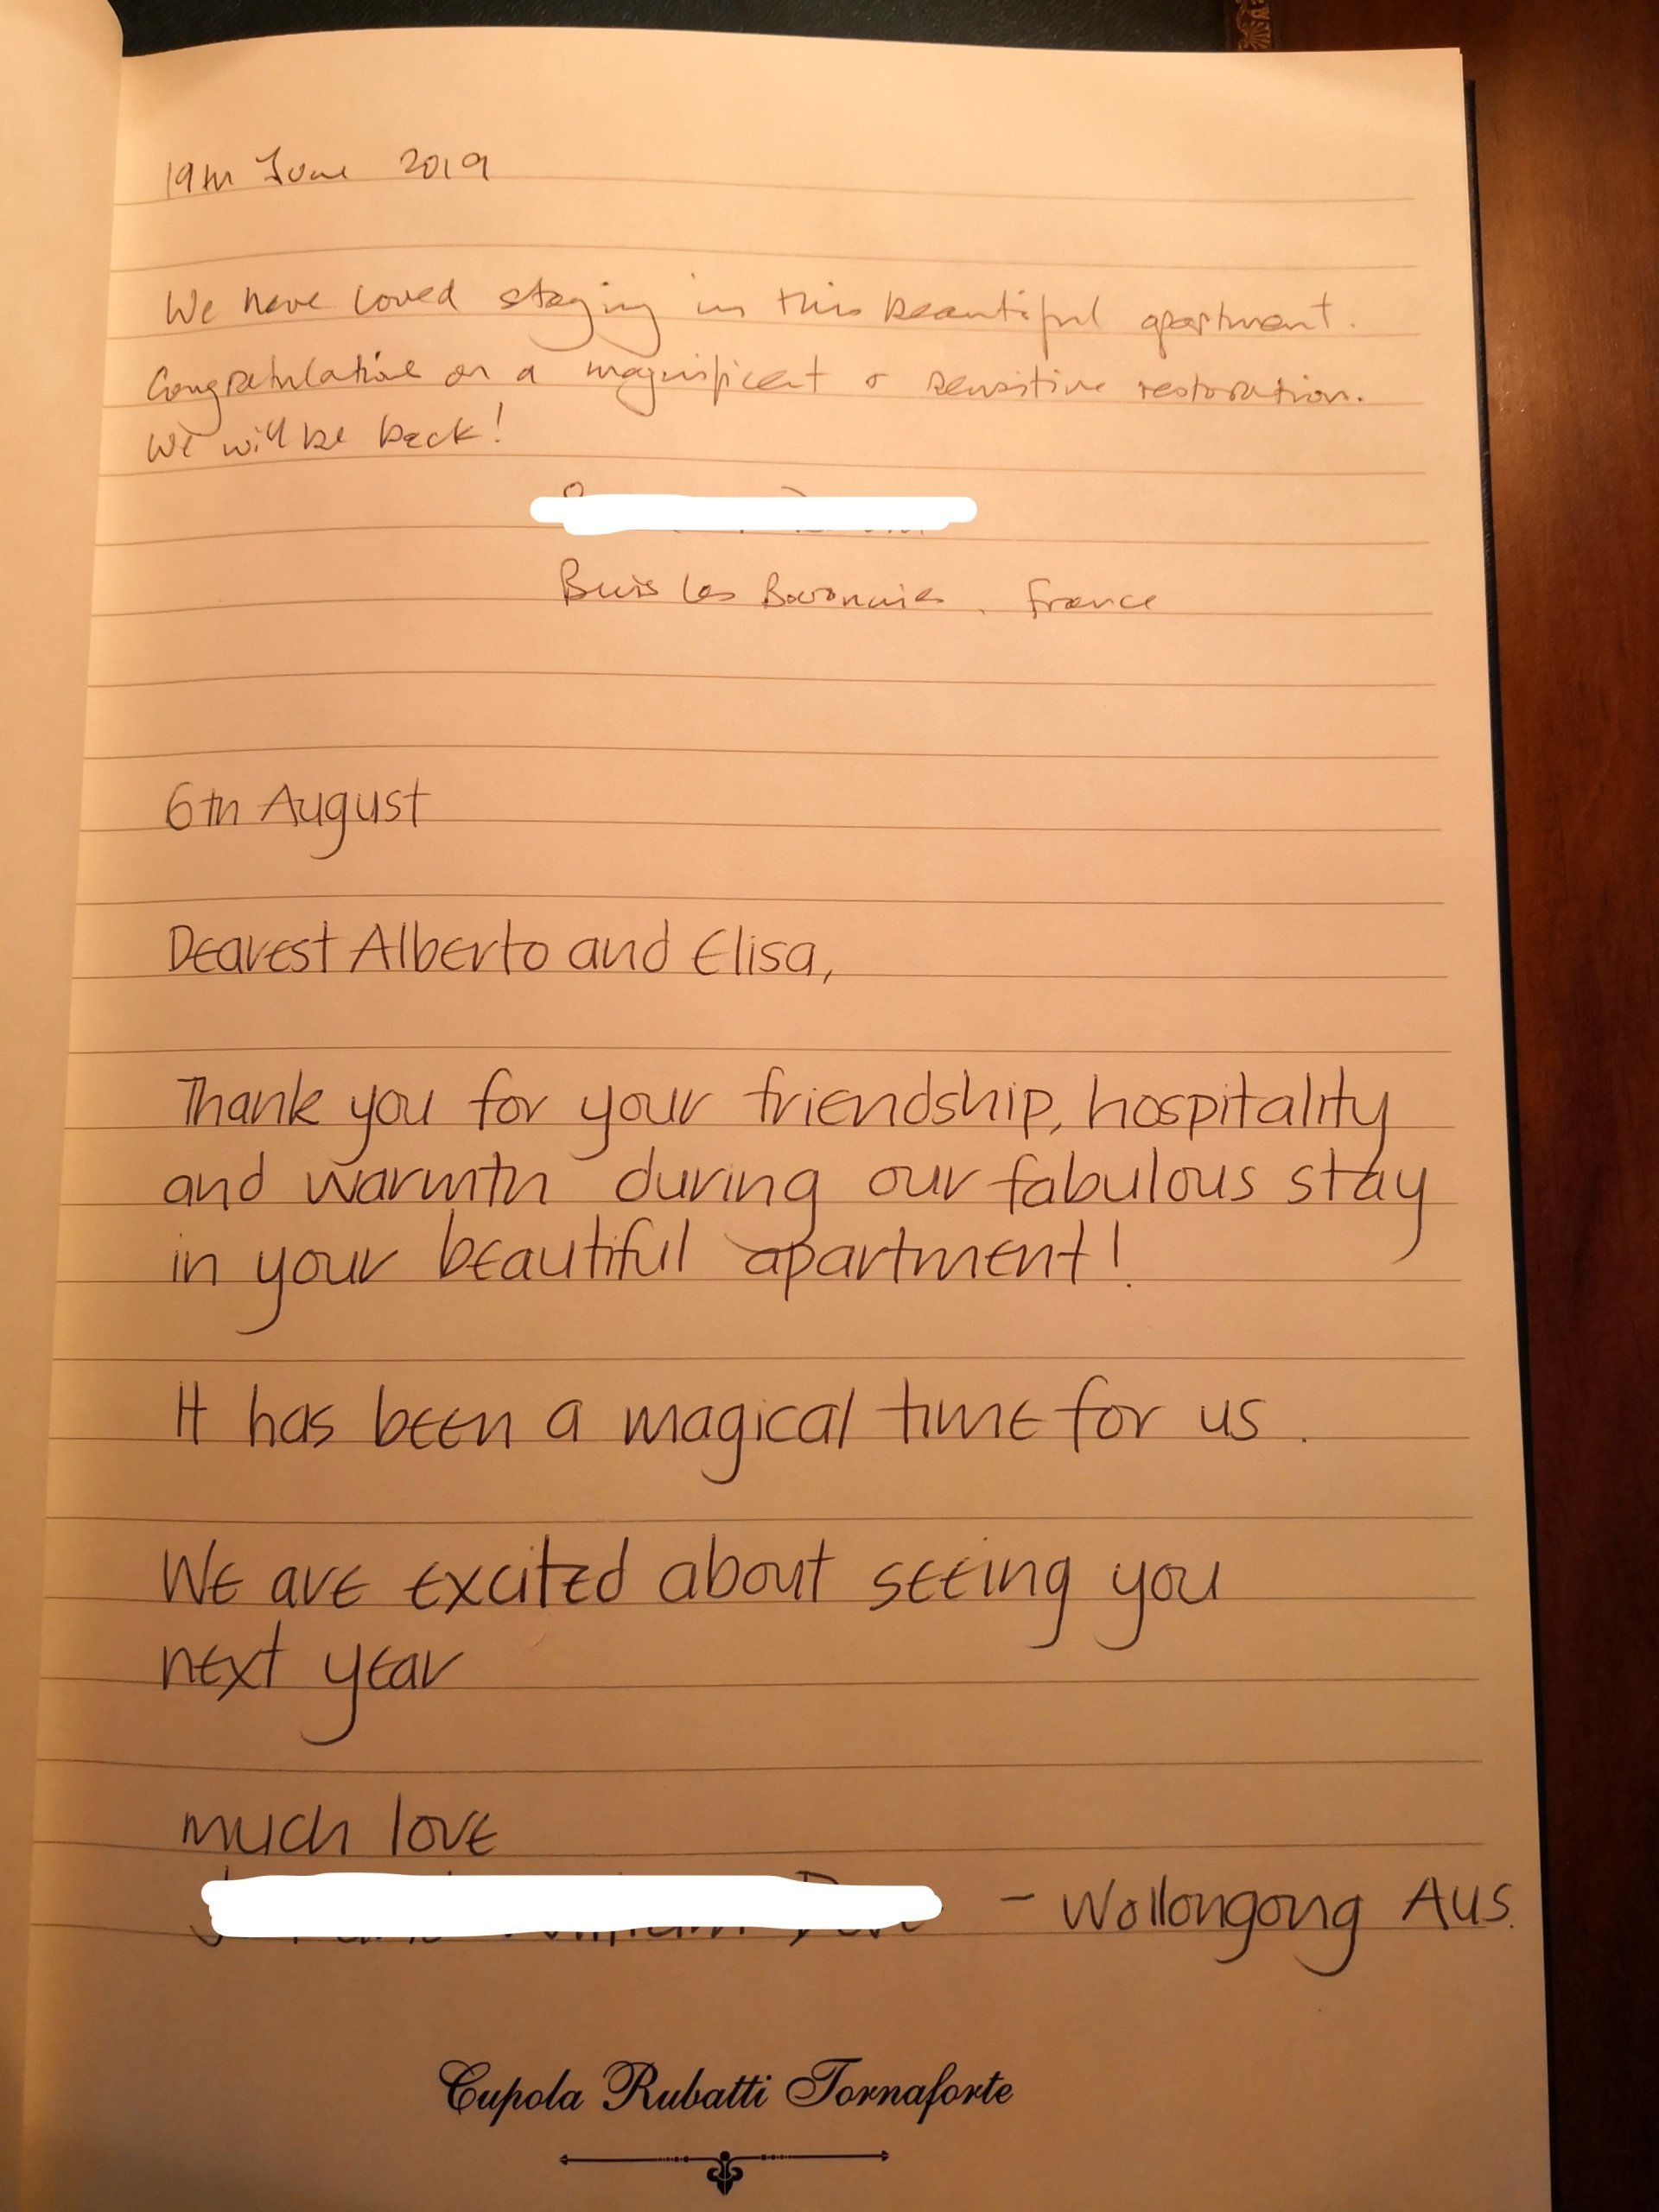 19th June 2019
We have loved staying in this beautiful apartment.
Congratulations on a magnificent & sensitive restoration.
We will be back!
Buis les Baronnies, France
6th August
Dearest Alberto and Elisa,
Thank you for your friendship, hospitality
and warmth during our fabulous stay
in your beautiful apartment!
It has been a magical time for us.
We are excited about seeing you
next year
much love
- Wollongong Aus.
Cupola Rubatti Tornaforte